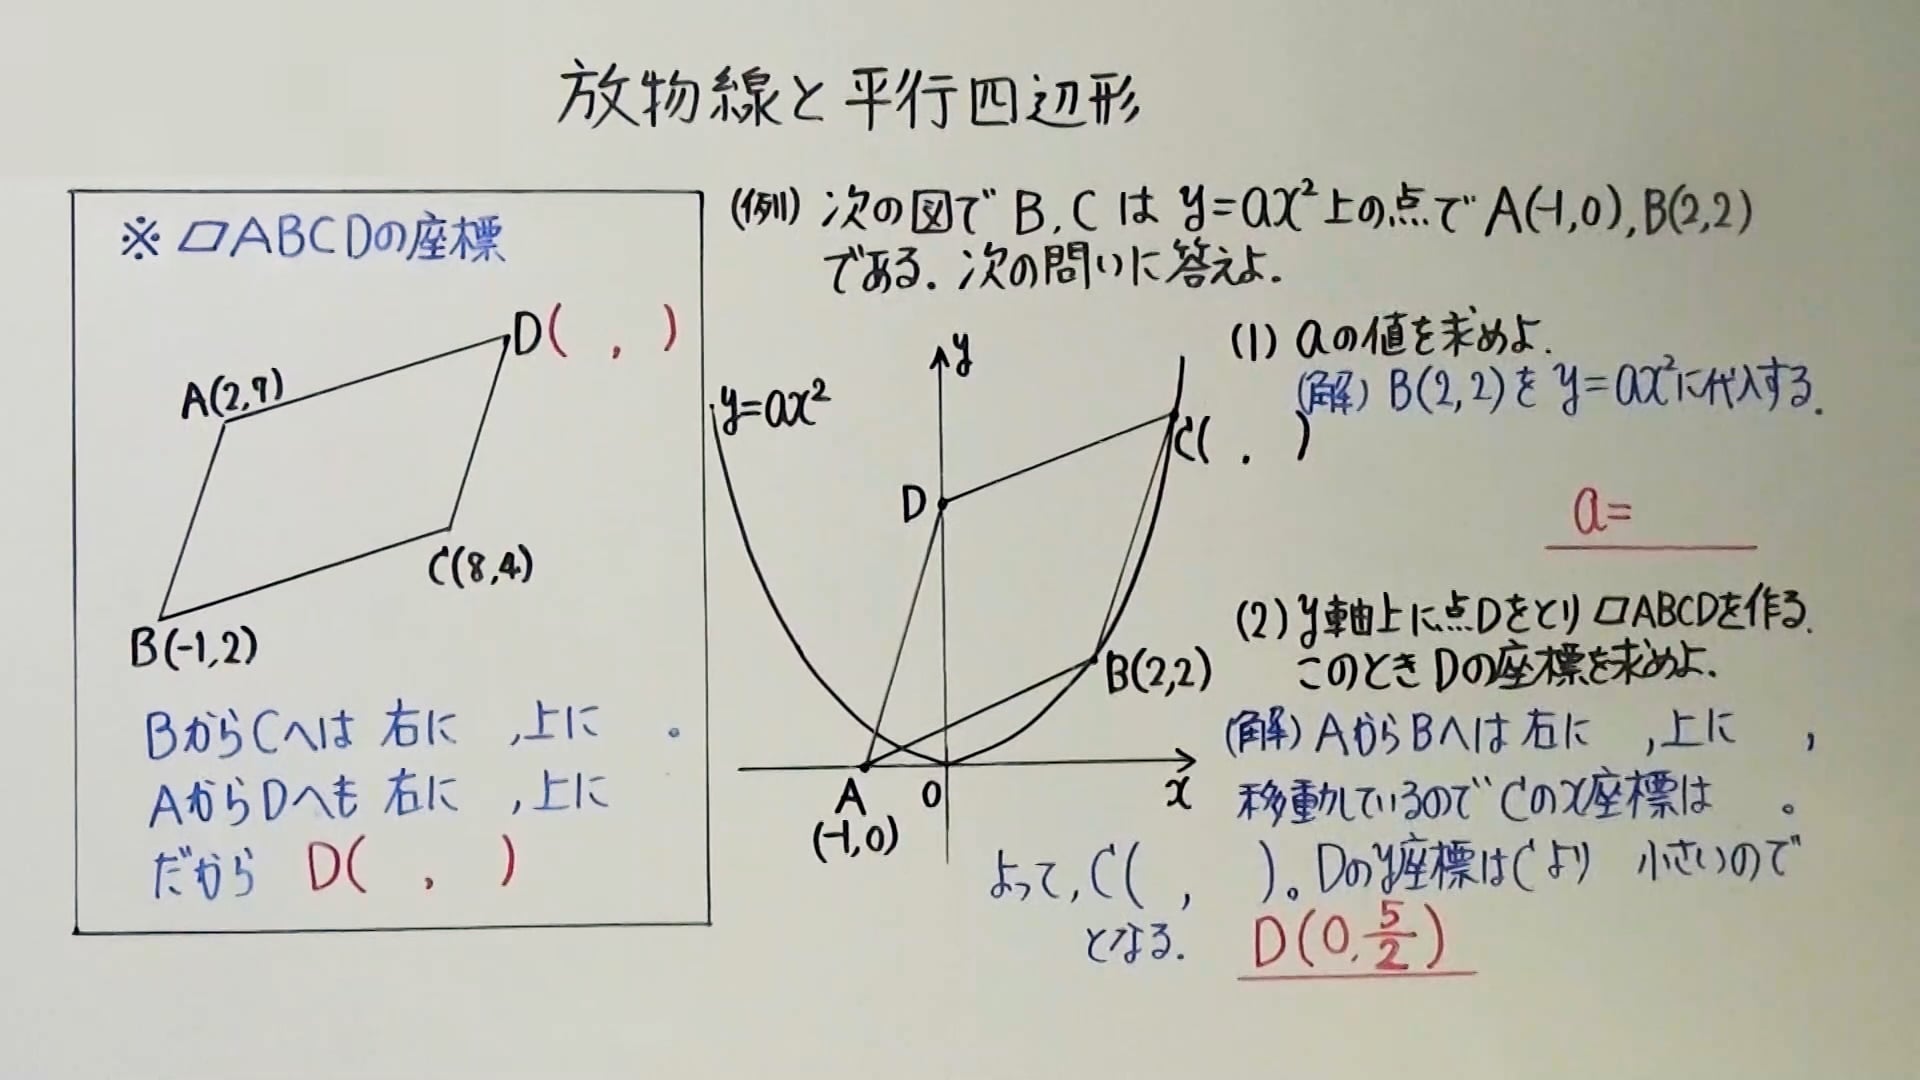 放物線と平行四辺形
※ ▱ABCDの座標
D( , )
A(2,7)
C(8,4)
B(-1,2)
BからCへは 右に ,上に 。
AからDへも 右に ,上に
だから D( , )
(例) 次の図で B,C は y=ax²上の点で A(-1,0), B(2,2)
である. 次の問いに答えよ.
y
y=ax²
C( . )
D
B(2,2)
A
O
x
(-1,0)
(1) aの値を求めよ.
(解) B(2,2)を y=ax²に代入する.
a=
(2) y軸上に点Dをとり ▱ABCDを作る.
このとき Dの座標を求めよ.
(解) AからBへは 右に ,上に ,
移動しているので Cのx座標は 。
よって, C( , )。Dのy座標はCより 小さいので
となる. D(0,5/2)